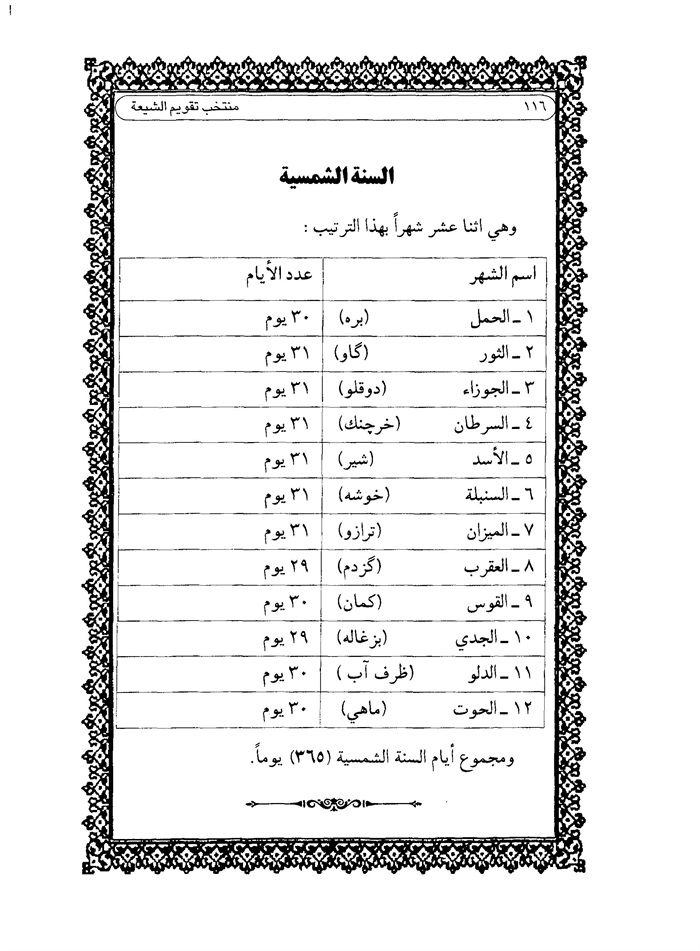 ١١٦ منتخب تقويم الشيعة
السنة الشمسية
وهي اثنا عشر شهراً بهذا الترتيب :
اسم الشهر عدد الأيام
١ ـ الحمل (بره) ٣٠ يوم
٢ ـ الثور (گاو) ٣١ يوم
٣ ـ الجوزاء (دوقلو) ٣١ يوم
٤ ـ السرطان (خرچنك) ٣١ يوم
٥ ـ الأسد (شير) ٣١ يوم
٦ ـ السنبلة (خوشه) ٣١ يوم
٧ ـ الميزان (ترازو) ٣١ يوم
٨ ـ العقرب (گزدم) ٢٩ يوم
٩ ـ القوس (كمان) ٣٠ يوم
١٠ ـ الجدي (بزغاله) ٢٩ يوم
١١ ـ الدلو (ظرف آب ) ٣٠ يوم
١٢ ـ الحوت (ماهي) ٣٠ يوم
ومجموع أيام السنة الشمسية (٣٦٥) يوماً.